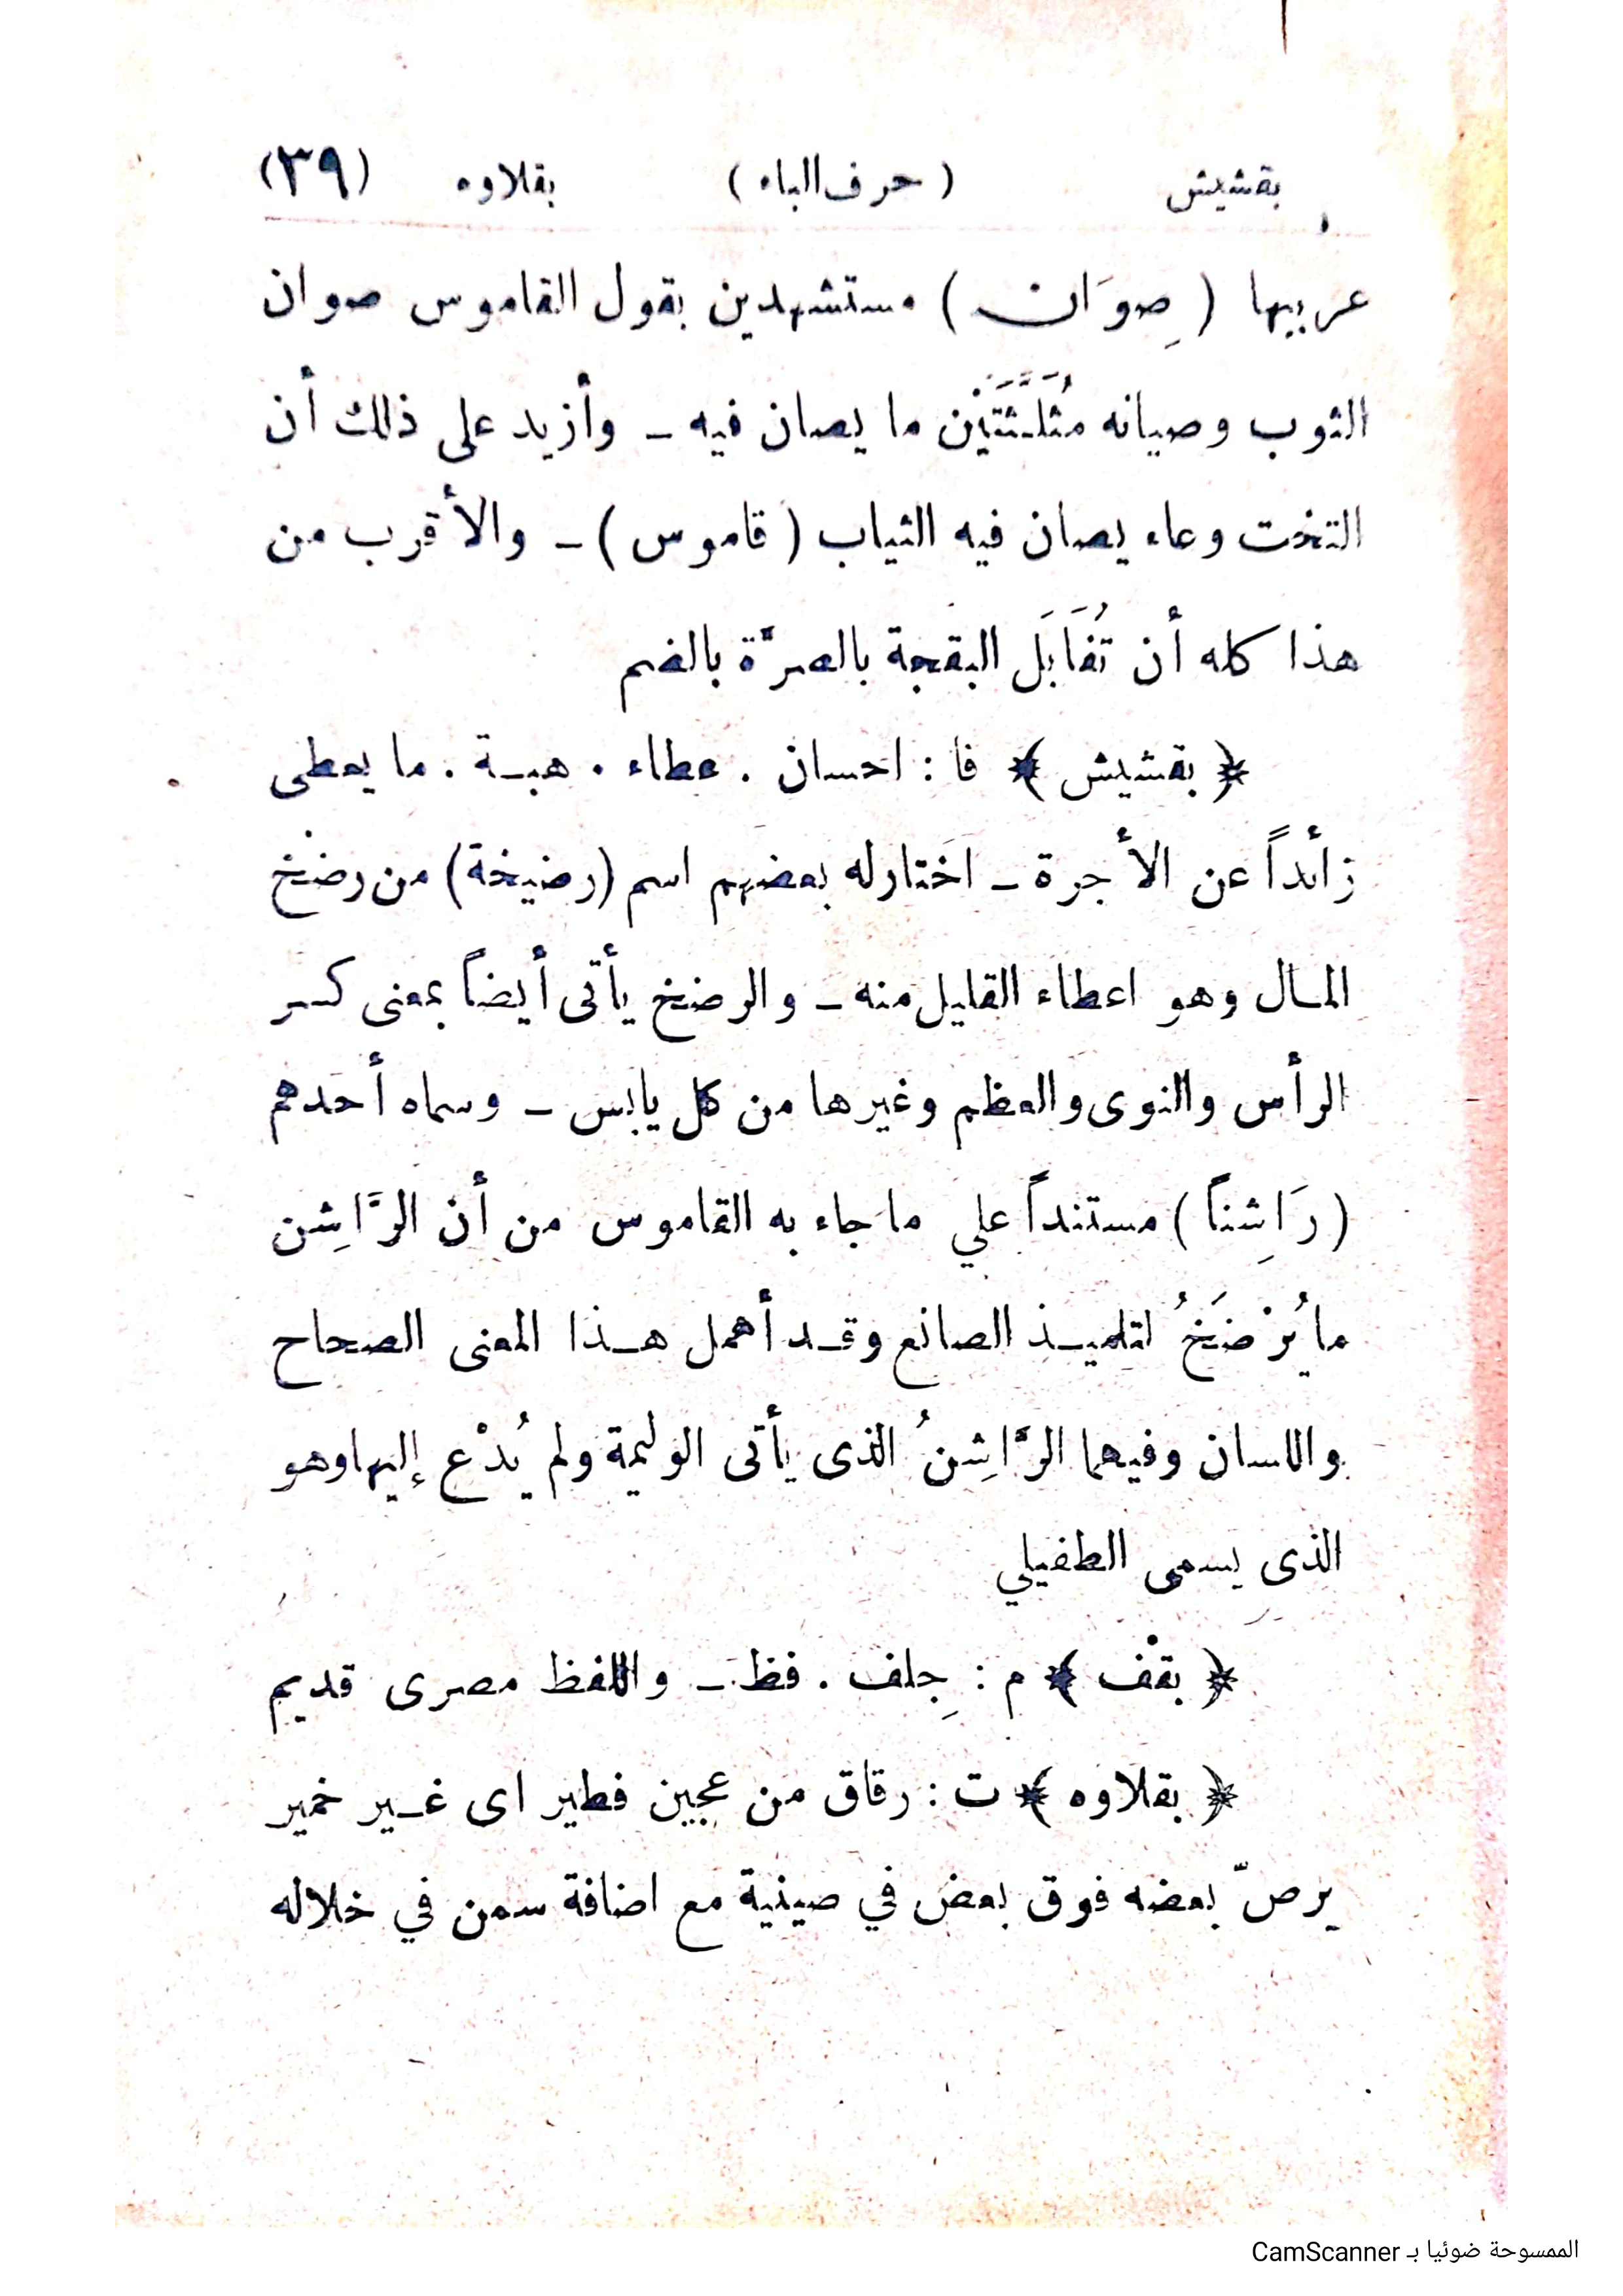 بقشيش ( حرف الباء ) بقلاوه (٣٩)
عربيها ( صِوَان ) مستشهدين بقول القاموس صوان
الثوب وصيانه مُثَلَّثَتَيْن ما يصان فيه ـ وأزيد على ذلك أن
التخت وعاء يصان فيه الثياب ( قاموس ) ـ والأقرب من
هذا كله أن تُقَابَل البقجة بالصرَّة بالضم
﴿ بقشيش ﴾ فا : احسان . عطاء . هبة . ما يعطى
زائداً عن الأجرة ـ اختار له بعضهم اسم (رضيخة) من رضْخ
المال وهو اعطاء القليل منه ـ والرضخ يأتى أيضاً بمعنى كسر
الرأس والنوى والعظم وغيرها من كل يابس ـ وسماه أحدهم
( رَاشِناً ) مستنداً علي ما جاء به القاموس من أن الرَّاشِن
ما يُرْضَخُ لتلميذ الصانع وقد أهمل هذا المعنى الصحاح
واللسان وفيهما الرَّاشِنُ الذى يأتى الوليمة ولم يُدْع إليها وهو
الذى يسمى الطفيلي
﴿ بقْف ﴾ م : جِلف . فظ ـ واللفظ مصرى قديم
﴿ بقلاوه ﴾ ت : رقاق من عجين فطير اى غير خمير
يرصّ بعضه فوق بعض في صينية مع اضافة سمن في خلاله
الممسوحة ضوئيا بـ CamScanner